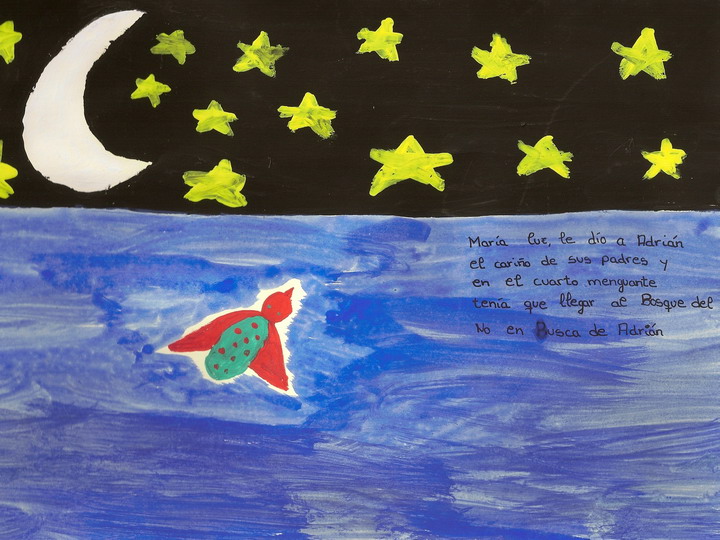 María luz, le dío a Adrián
el cariño de sus padres y
en el cuarto menguante
tenía que llegar al Bosque del
No en Busca de Adrián